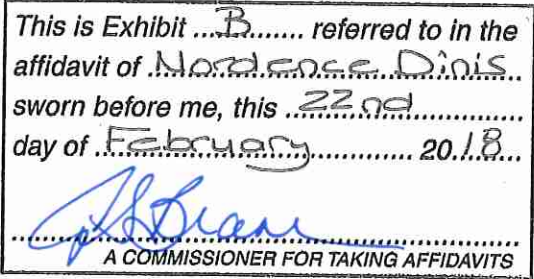 This is Exhibit ....B........ referred to in the
affidavit of .Nordence Dinis..
sworn before me, this .22nd.........
day of .February................ 20.18...
A COMMISSIONER FOR TAKING AFFIDAVITS